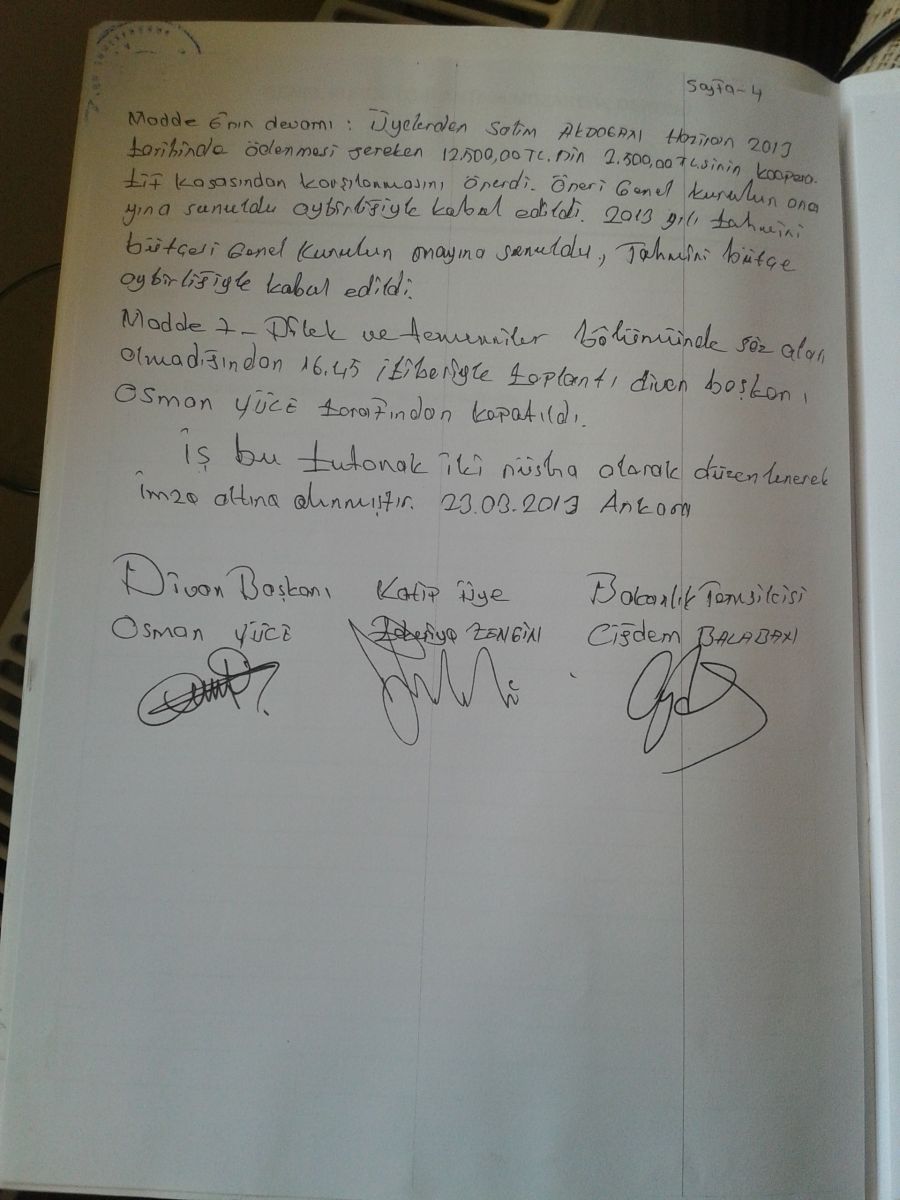 Sayfa-4
Madde 6nın devamı : Üyelerden Satım AKDOĞAN Haziran 2013
tarihinde ödenmesi gereken 12.500,00 TL. nin 2.500,00 TL.sinin koopera-
tif kasasından karşılanmasını önerdi. Öneri Genel kurulun ona
yına sunuldu oybirliğiyle kabul edildi. 2013 yılı tahmini
bütçesi Genel Kurulun onayına sunuldu, Tahmini bütçe
oybirliğiyle kabul edildi.
Madde 7- Dilek ve temenniler bölümünde söz alan
olmadığından 16.45 itiberiyle toplantı divan başkanı
Osman YÜCE tarafından kapatıldı.
İş bu tutanak iki nüsha olarak düzenlenerek
imza altına alınmıştır. 23.03.2013 Ankara
Divan Başkanı Katip Üye Bakanlık Temsilcisi
Osman YÜCE Zekeriya ZENGİN Çiğdem BALABAN